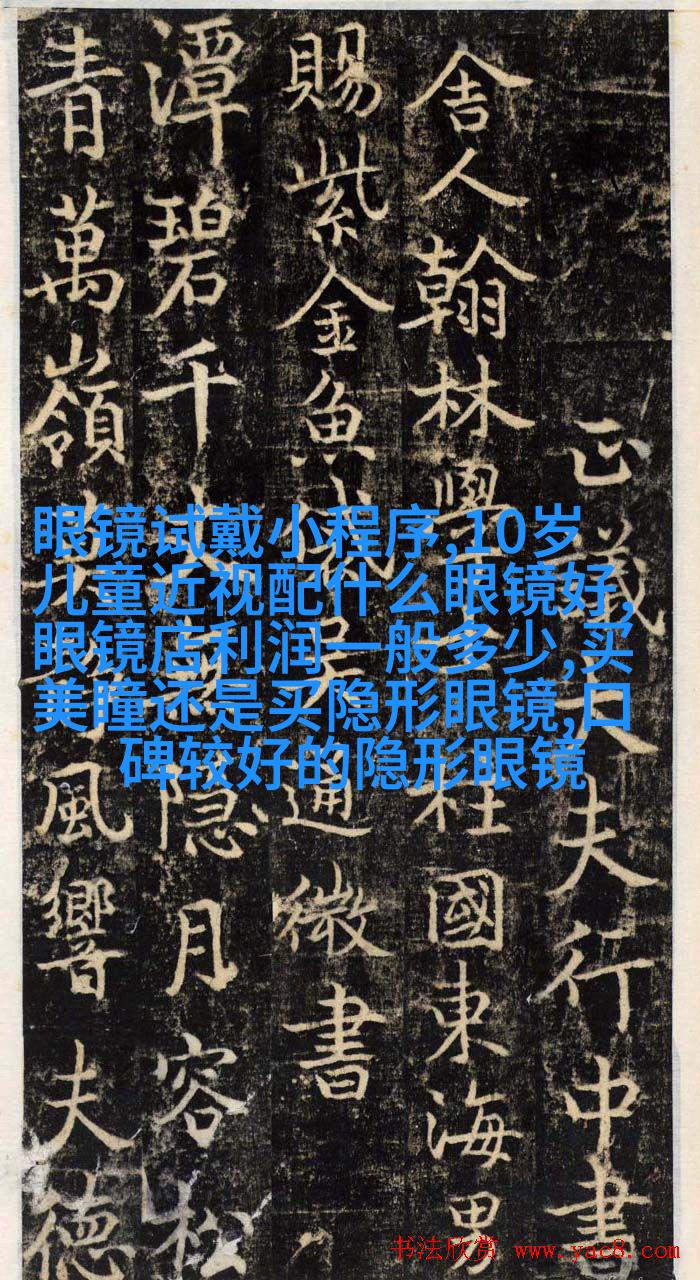 正議大夫行中書
舎人翰林學柱國東海男
賜紫金魚袋吴通微書
潭碧千隐月容松
青萬嶺風響夫德
眼镜试戴小程序,10岁
儿童近视配什么眼镜好,
眼镜店利润一般多少,买
美瞳还是买隐形眼镜,口
碑较好的隐形眼镜
书法欣赏 www.yac8.com